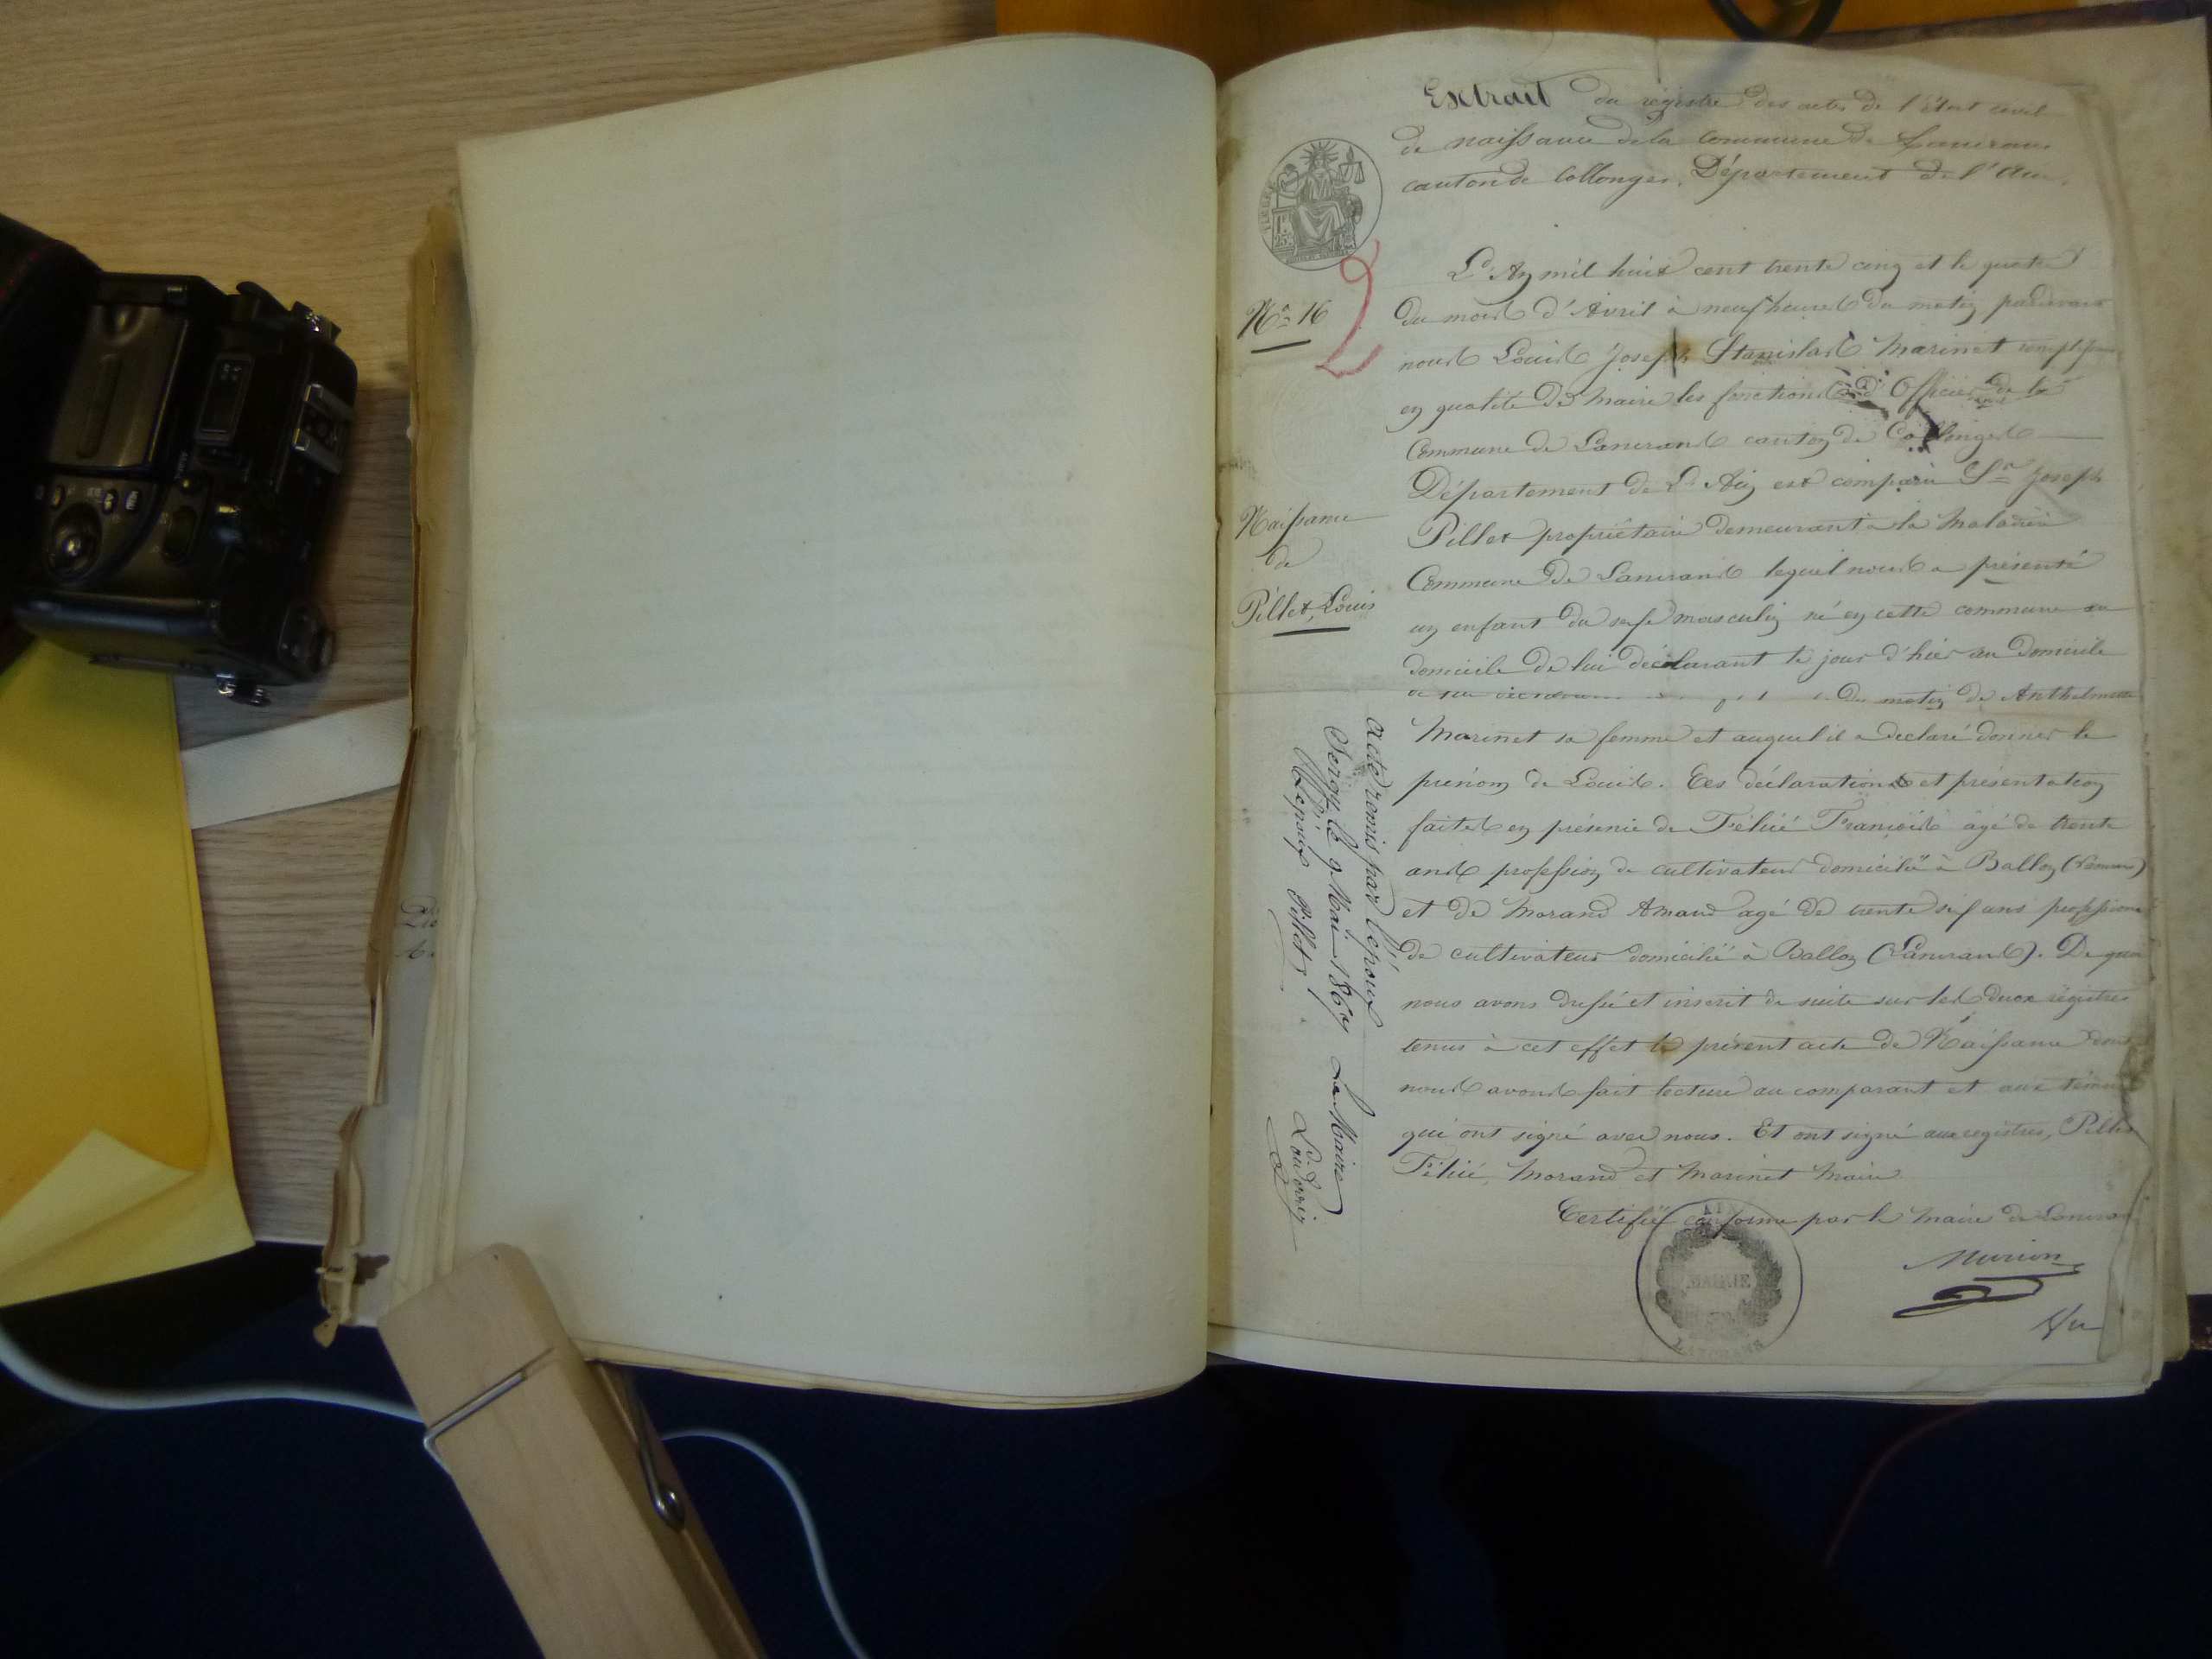 Extrait du registre des actes de l'État civil
de naissance de la commune de Lancrans
canton de Collonges, Département de l'Ain.
TIMBRE
1F
25c
L'An mil huit cent trente cinq et le quatre
du mois d'Avril à neuf heures du matin pardevant
nous Louis Joseph Stanislas Marinet
en qualité de Maire les fonctions d'Officier de la
Commune de Lancrans canton de Collonges
Département de L'Ain est comparu Sr Joseph
Pillet propriétaire demeurant à la Maladière
Commune de Lancrans lequel nous a présenté
un enfant du sexe masculin né en cette commune au
domicile de lui déclarant le jour d'hier au domicile
du matin de Anthelmette
Marinet sa femme et auquel il a déclaré donner le
prénom de Louis. Ces déclarations et présentation
faites en présence de Félicé François âgé de trente
ans profession de cultivateur domicilié à Ballon (Lancrans)
et de Morand Amand agé de trente six ans profession
de cultivateur domicilié à Ballon (Lancrans). De quoi
nous avons dressé et inscrit de suite sur les deux régistres
tenus à cet effet le présent acte de Naissance dont
nous avons fait lecture au comparant et aux témoins
qui ont signé avec nous. Et ont signé aux registres, Pillet
Félicé, Morand et Marinet Maire
Certifié conforme par le Maire de Lancrans
MAIRIE
AIN
LANCRANS
Nº 16
2
Naissance
de
Pillet, Louis
acte remis par l'époux
Sergy, le 9 Mai 1867 Le Maire
L'époux Pillet